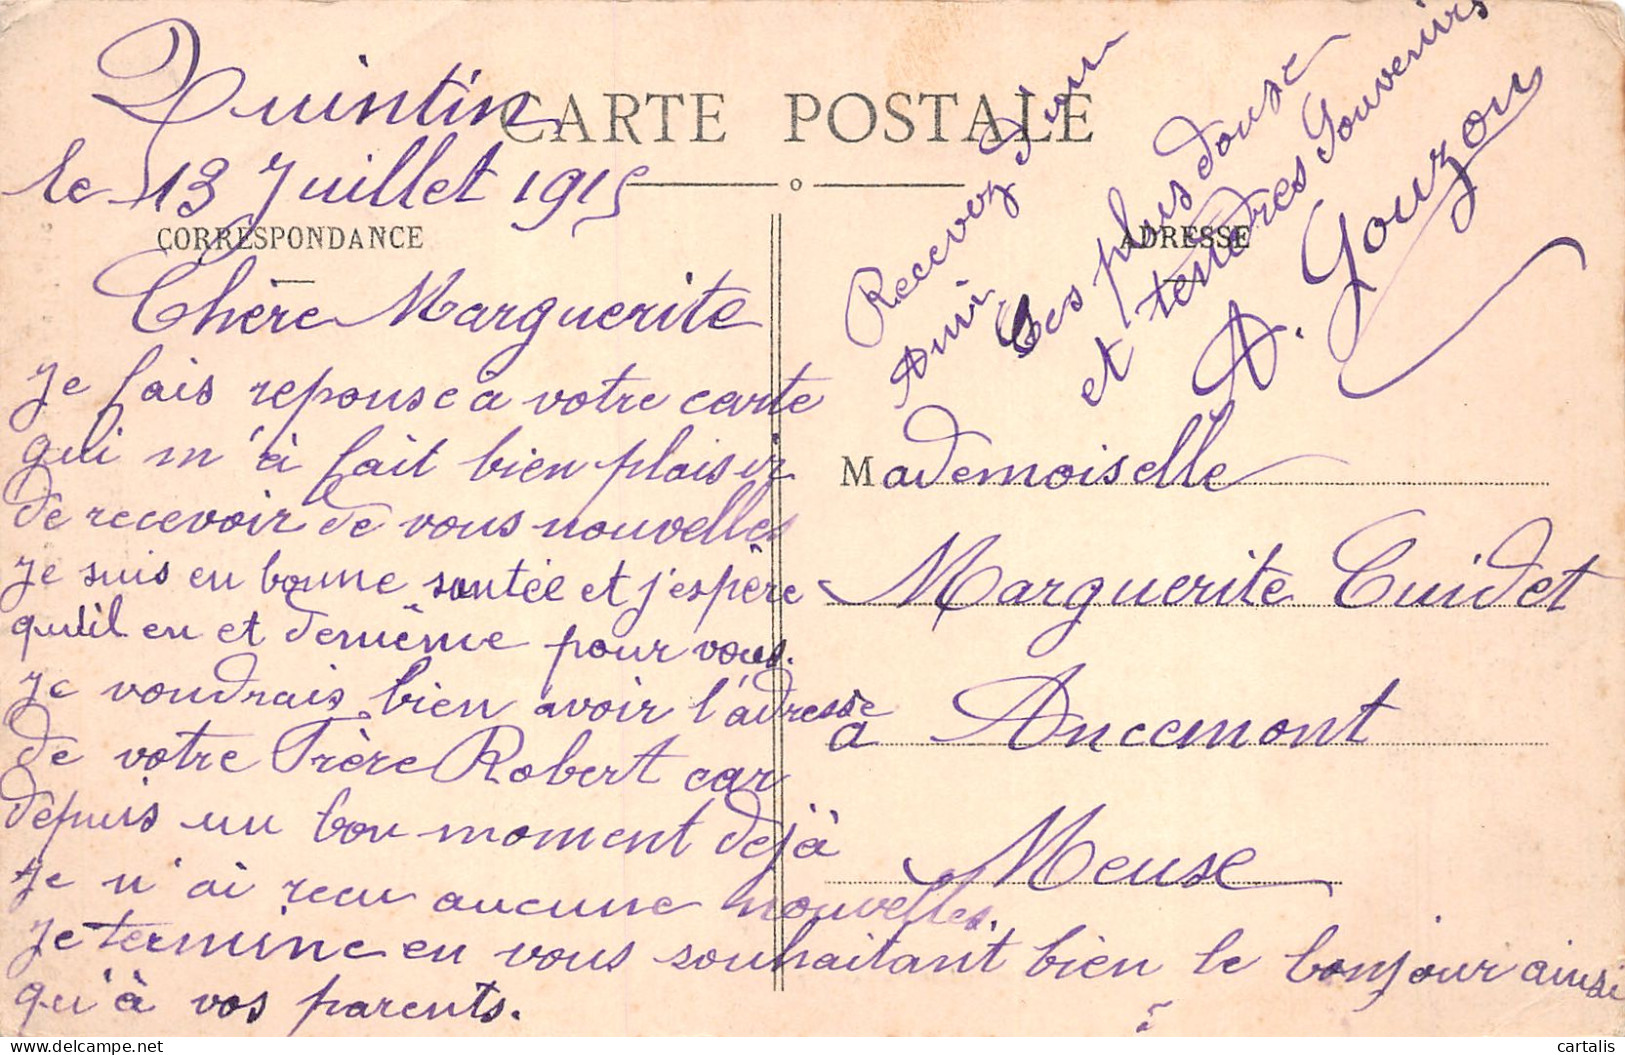 Quintin
CARTE POSTALE
le 13 Juillet 1915
CORRESPONDANCE
Chère Marguerite
Je fais reponse a votre carte
qui m'à fait bien plaisir
de recevoir de vous nouvelles
Je suis en bonne santée et j'espère
qu'til en et demême pour vous.
Je voudrais bien avoir l'adresse
de votre Frère Robert car
depuis un bon moment dejà
Je n'ai recu aucune nouvelles.
Je termine en vous souhaitant bien le bonjour ainsi
qu'à vos parents.
Recevez d'un
Ami
Les plus douse
et tendres Souvenirs
A. Gouzou
ADRESSE
Mademoiselle
Marguerite Cuidet
a Ancemont
Meuse
cartalis
www.delcampe.net